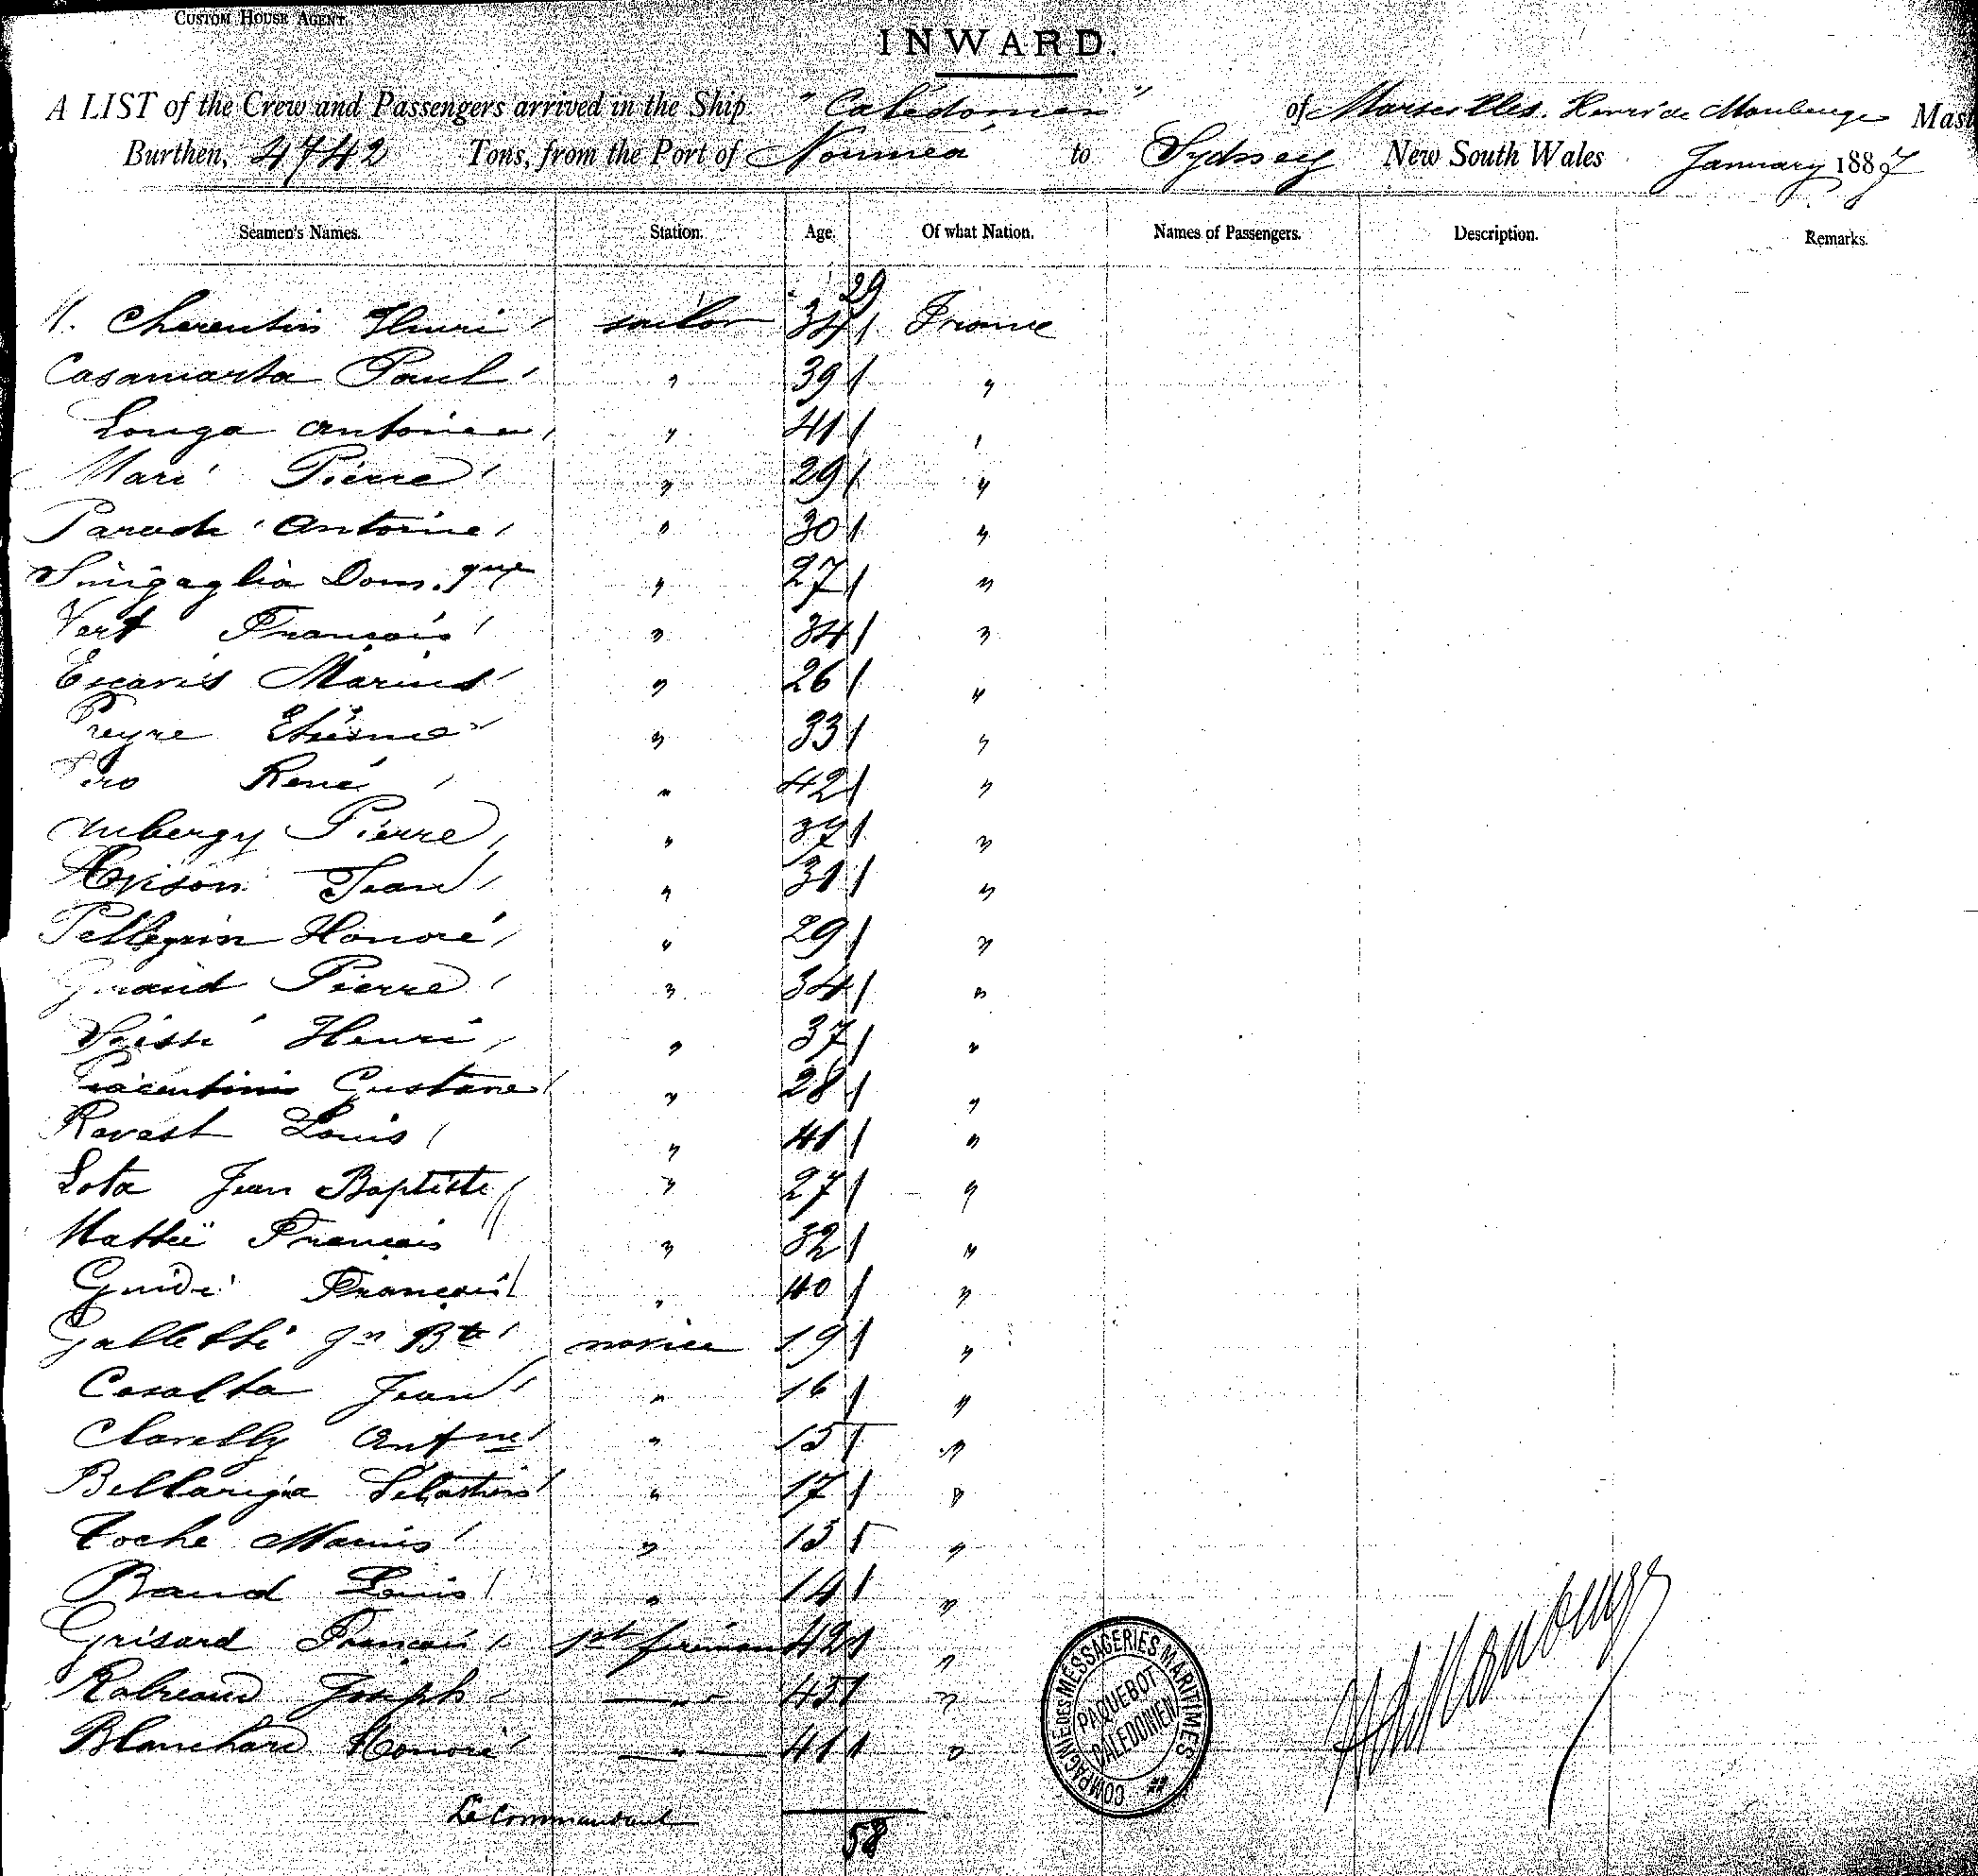 CUSTOM HOUSE AGENT.
INWARD.
A LIST of the Crew and Passengers arrived in the Ship "Caledonien" of Marseilles. Henri de Maubeuge Mast
Burthen, 4742 Tons, from the Port of Noumea to Sydney New South Wales January 1887
Seamen's Names. Station. Age. Of what Nation. Names of Passengers. Description. Remarks.
29
Charentin Henri sailor 34 1 France
Casamarta Paul " 39 1 "
Longa Antoine " 41 1 "
Mari Pierre " 29 1 "
Parodi Antoine " 30 1 "
Sinigaglia Dom.que " 27 1 "
Vert François " 34 1 "
Escaris Marius " 26 1 "
Preyre Etienne " 33 1 "
Piro René " 42 1 "
Aubergy Pierre " 37 1 "
Avison Jean " 31 1 "
Pellegrin Honoré " 29 1 "
Giraud Pierre " 34 1 "
Henri " 37 1 "
Piacentini Gustave " 28 1 "
Ravast Louis " 41 1 "
Lota Jean Baptiste " 27 1 "
Matteï François " 32 1 "
Guidi François " 40 1 "
Galletti Jn Bte novice 19 1 "
Casalta Jean " 16 1 "
Clarelly Antne " 15 1 "
Bellarigia Sébastien " 17 1 "
Toche Marius " 15 1 "
Braud Louis " 14 1 "
Grisard François 1st fireman 42 1 "
Rabreaud Joseph " 45 1 "
Blanchard Honoré " 41 1 "
Le Commandant
58
COMPAGNIE DES MESSAGERIES MARITIMES
PAQUEBOT
CALÉDONIEN
H de Maubeuge